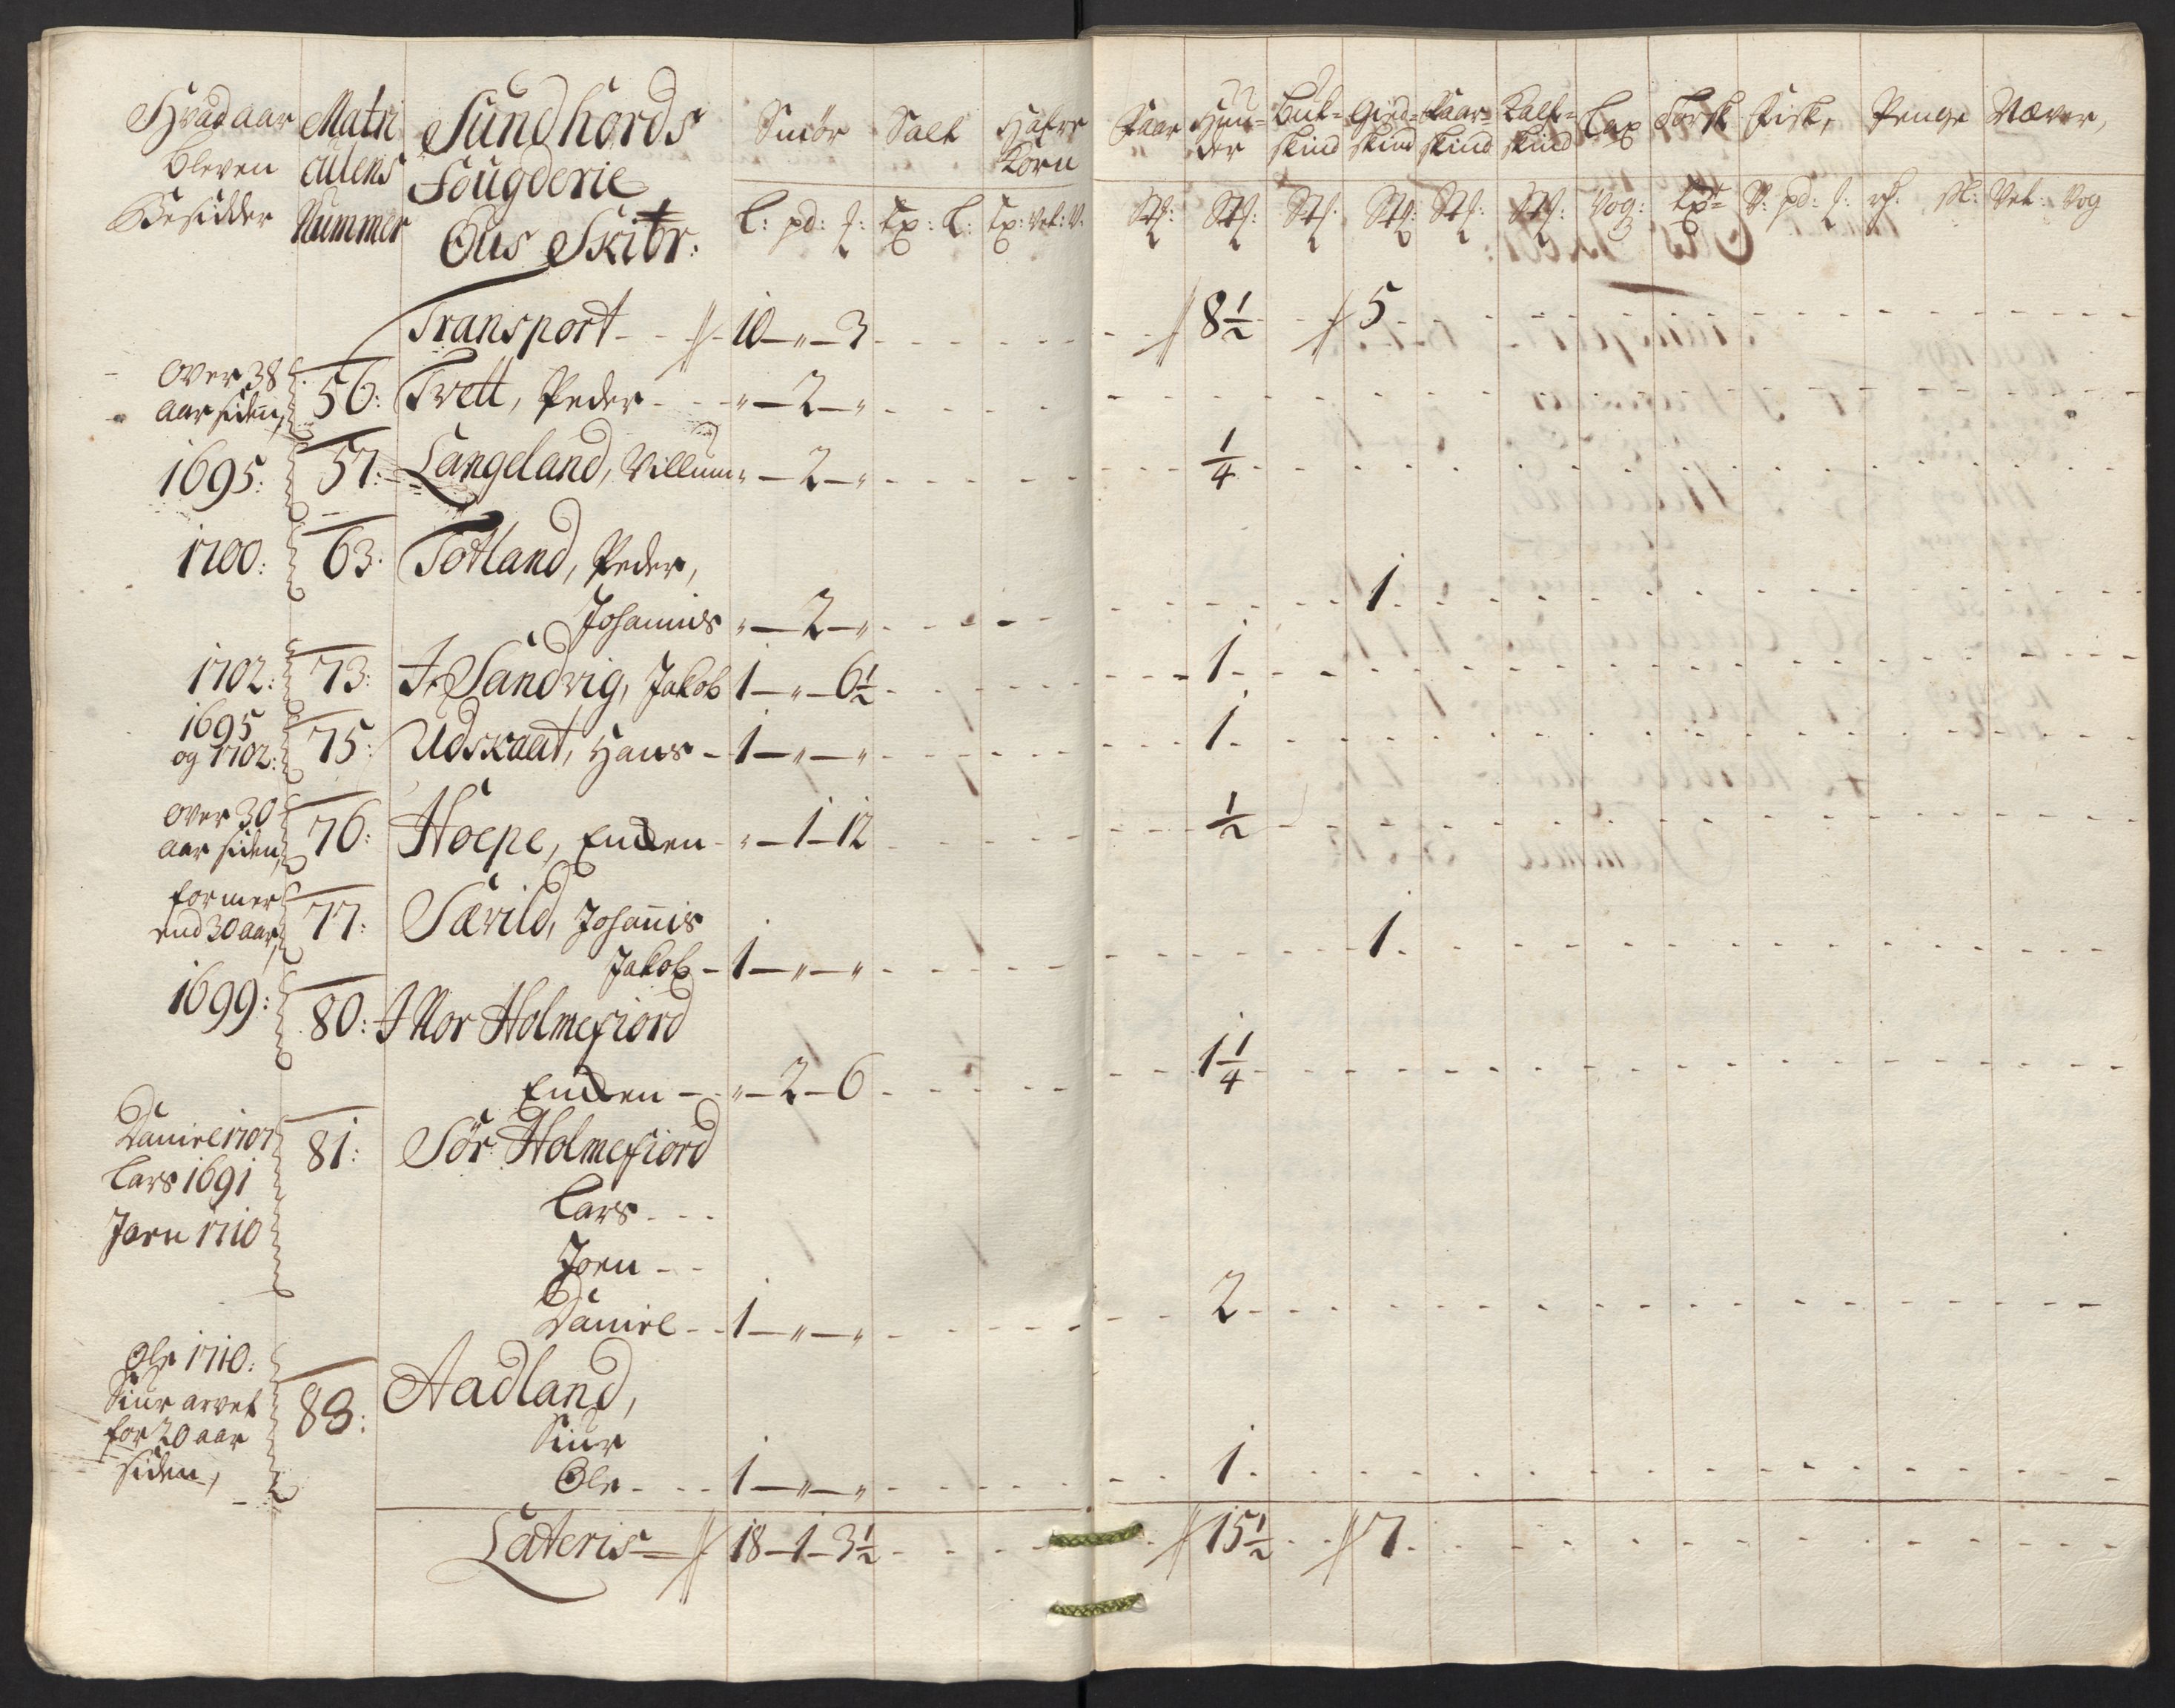 Hvad aar
bleven
Besidder
Matri
culens
Nummer
Sundhords
Fougderie
Ous Skibr:
Smör Salt Hafre Korn
L: pd: Tp: L: Tp: Vet: V:
Faar Huu-der Buk-skind Gied-skind Faar-skind Kalf-skind Lax Torsk Fisk, Penge Næver,
Stk: Stk: Stk: Stk: Stk: Stk: Vog: V: pd: M: Vet: Vog
Transport - - 10 - " - 3 8 1/2 5
over 38
aar siden, 56: Tvett, Peder - - " - 2 - "
1695: 57: Langeland, Villum " - 2 - " 1/4
1700: 63: Totland, Peder,
Johannis " - 2 - " 1
1702: 73: J. Sandvig, Jakob 1 - " - 6 1/2 1
1695
og 1702: 75: Udskaat, Hans - 1 - " - " 1
over 30
aar siden, 76: Hoepe, Enken - " - 1 - 12 1/2
for mer
end 30 aar, 77: Sævild, Johannis
Jakob - 1 - " - " 1
1699: 80: J Nor Holmefiord
Enken - " - 2 - 6 1 1/4
Daniel 1707
Lars 1691
Jorn 1710
81: Sör Holmefiord
Lars - - -
Joen - -
Daniel - - 1 - " - " 2
Ole 1710:
Siur arvet
for 20 aar
siden,
83: Aadland,
Siur
Ole - - - 1 - " - " 1
Lateris 18 - 1 - 3 1/2 15 1/2 7